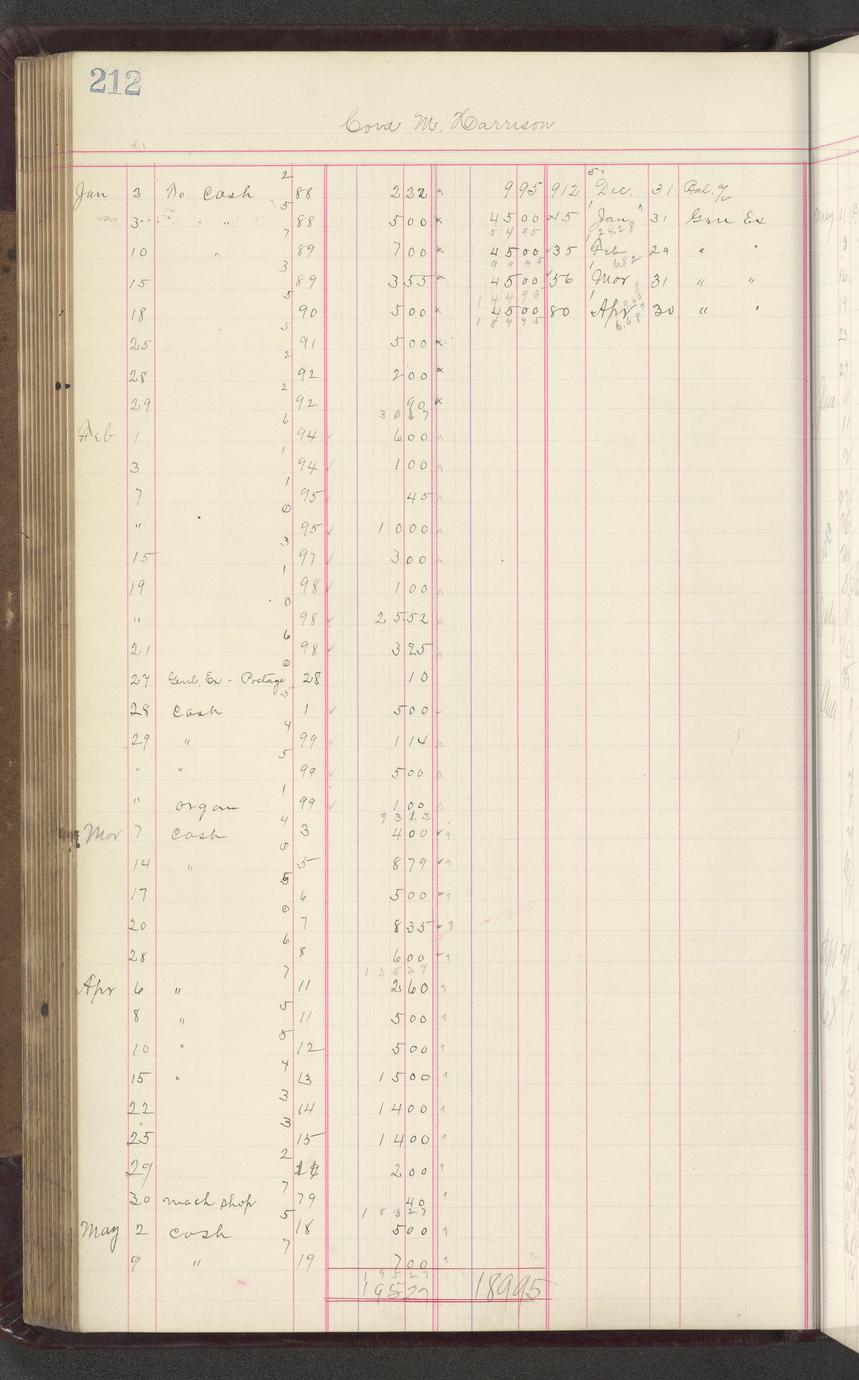 212
Cora M. Harrison.
Jan 2 To Cash 2 88 2 22 9 95 912 Dec. 31 Bal. %
3 " 5 88 5 00 45 00 15 Jan 31 Gen Ex
54 95
10 " 7 89 7 00 45 00 35 Feb 29 " "
99 95
15 3 89 3 55 45 00 56 Mar 31 " "
144 95
18 5 90 5 00 45 00 80 Apr 30 " "
189 95
25 5 91 5 00
28 2 92 2 00
29 2 92 90
30 67
Feb 1 6 94 6 00
3 1 94 1 00
7 1 95 45
" 0 95 10 00
15 3 97 3 00
19 1 98 1 00
" 0 98 25 52
21 6 98 3 25
27 Genl. Ex - Postage 0 28 10
28 Cash 5 1 5 00
29 " 4 99 1 14
" " 5 99 5 00
" organ 1 99 1 00
93 13
Mar 7 Cash 4 3 4 00
14 " 0 5 8 79
17 5 6 5 00
20 0 7 8 35
28 6 8 6 00
125 27
Apr 6 " 7 11 2 60
8 " 5 11 5 00
10 " 5 12 5 00
15 " 4 13 15 00
22 3 14 14 00
25 3 15 14 00
29 2 2 00
30 mach shop 7 79 40
183 27
May 2 Cash 5 18 5 00
9 " 7 19 7 00
195 27
195 27 189 95